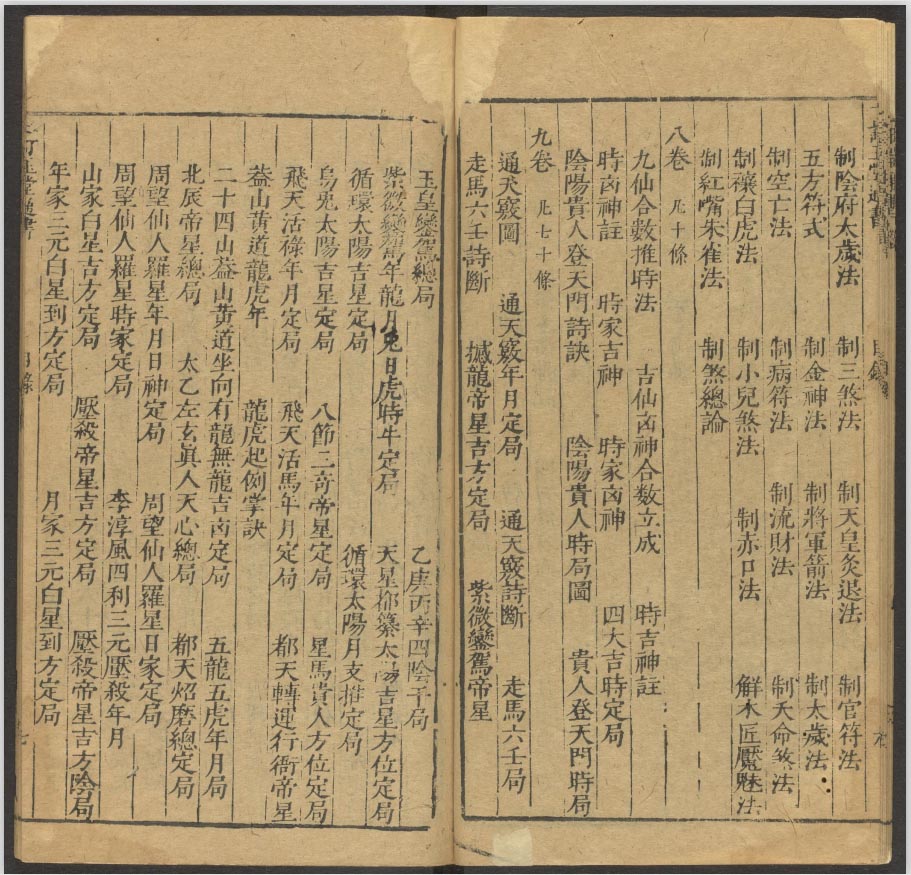 制陰府太歲法 制三煞法 制天皇灸退法 制官符法
五方符式 制金神法 制將軍箭法 制太歲法
制空亡法 制病符法 制流財法 制天命煞法
制禳白虎法 制小兒煞法 制赤口法 解木匠魘魅法
制紅嘴朱雀法 制煞總論
八卷 凡十條
九仙合數推時法 吉仙凶神合数立成 時吉神註
時凶神註 時家吉神 時家凶神 四大吉時定局
陰陽貴人登天門詩訣 陰陽貴人時局圖 貴人登天門時局
九卷 凡七十條
通天竅圖 通天竅年月定局 通天竅詩斷 走馬六壬局
走馬六壬詩斷 撼龍帝星吉方定局 紫微鑾駕帝星
玉皇鑾駕總局 乙庚丙辛四陰干局
紫微鑾駕年龍月兎日虎時牛定局 天星都纂太陽吉星方位定局
循環太陽吉星定局 循環太陽月支推定局
烏兎太陽吉星定局 八節三奇帝星定局 星馬貴人方位定局
飛天活祿年月定局 飛天活馬年月定局 都天轉運行衙帝星
葢山黃道龍虎年 龍虎起例掌訣
二十四山葢山黃道坐向有龍無龍吉凶定局 五龍五虎年月局
北辰帝星總局 太乙左玄眞人天心總局 都天炤磨總定局
周望仙人羅星年月日神定局 周望仙人羅星日家定局
周望仙人羅星時家定局 李淳風四利三元壓殺年月
山家白星吉方定局 壓殺帝星吉方定局 壓殺帝星吉方陰局
年家三元白星到方定局 月家三元白星到方定局